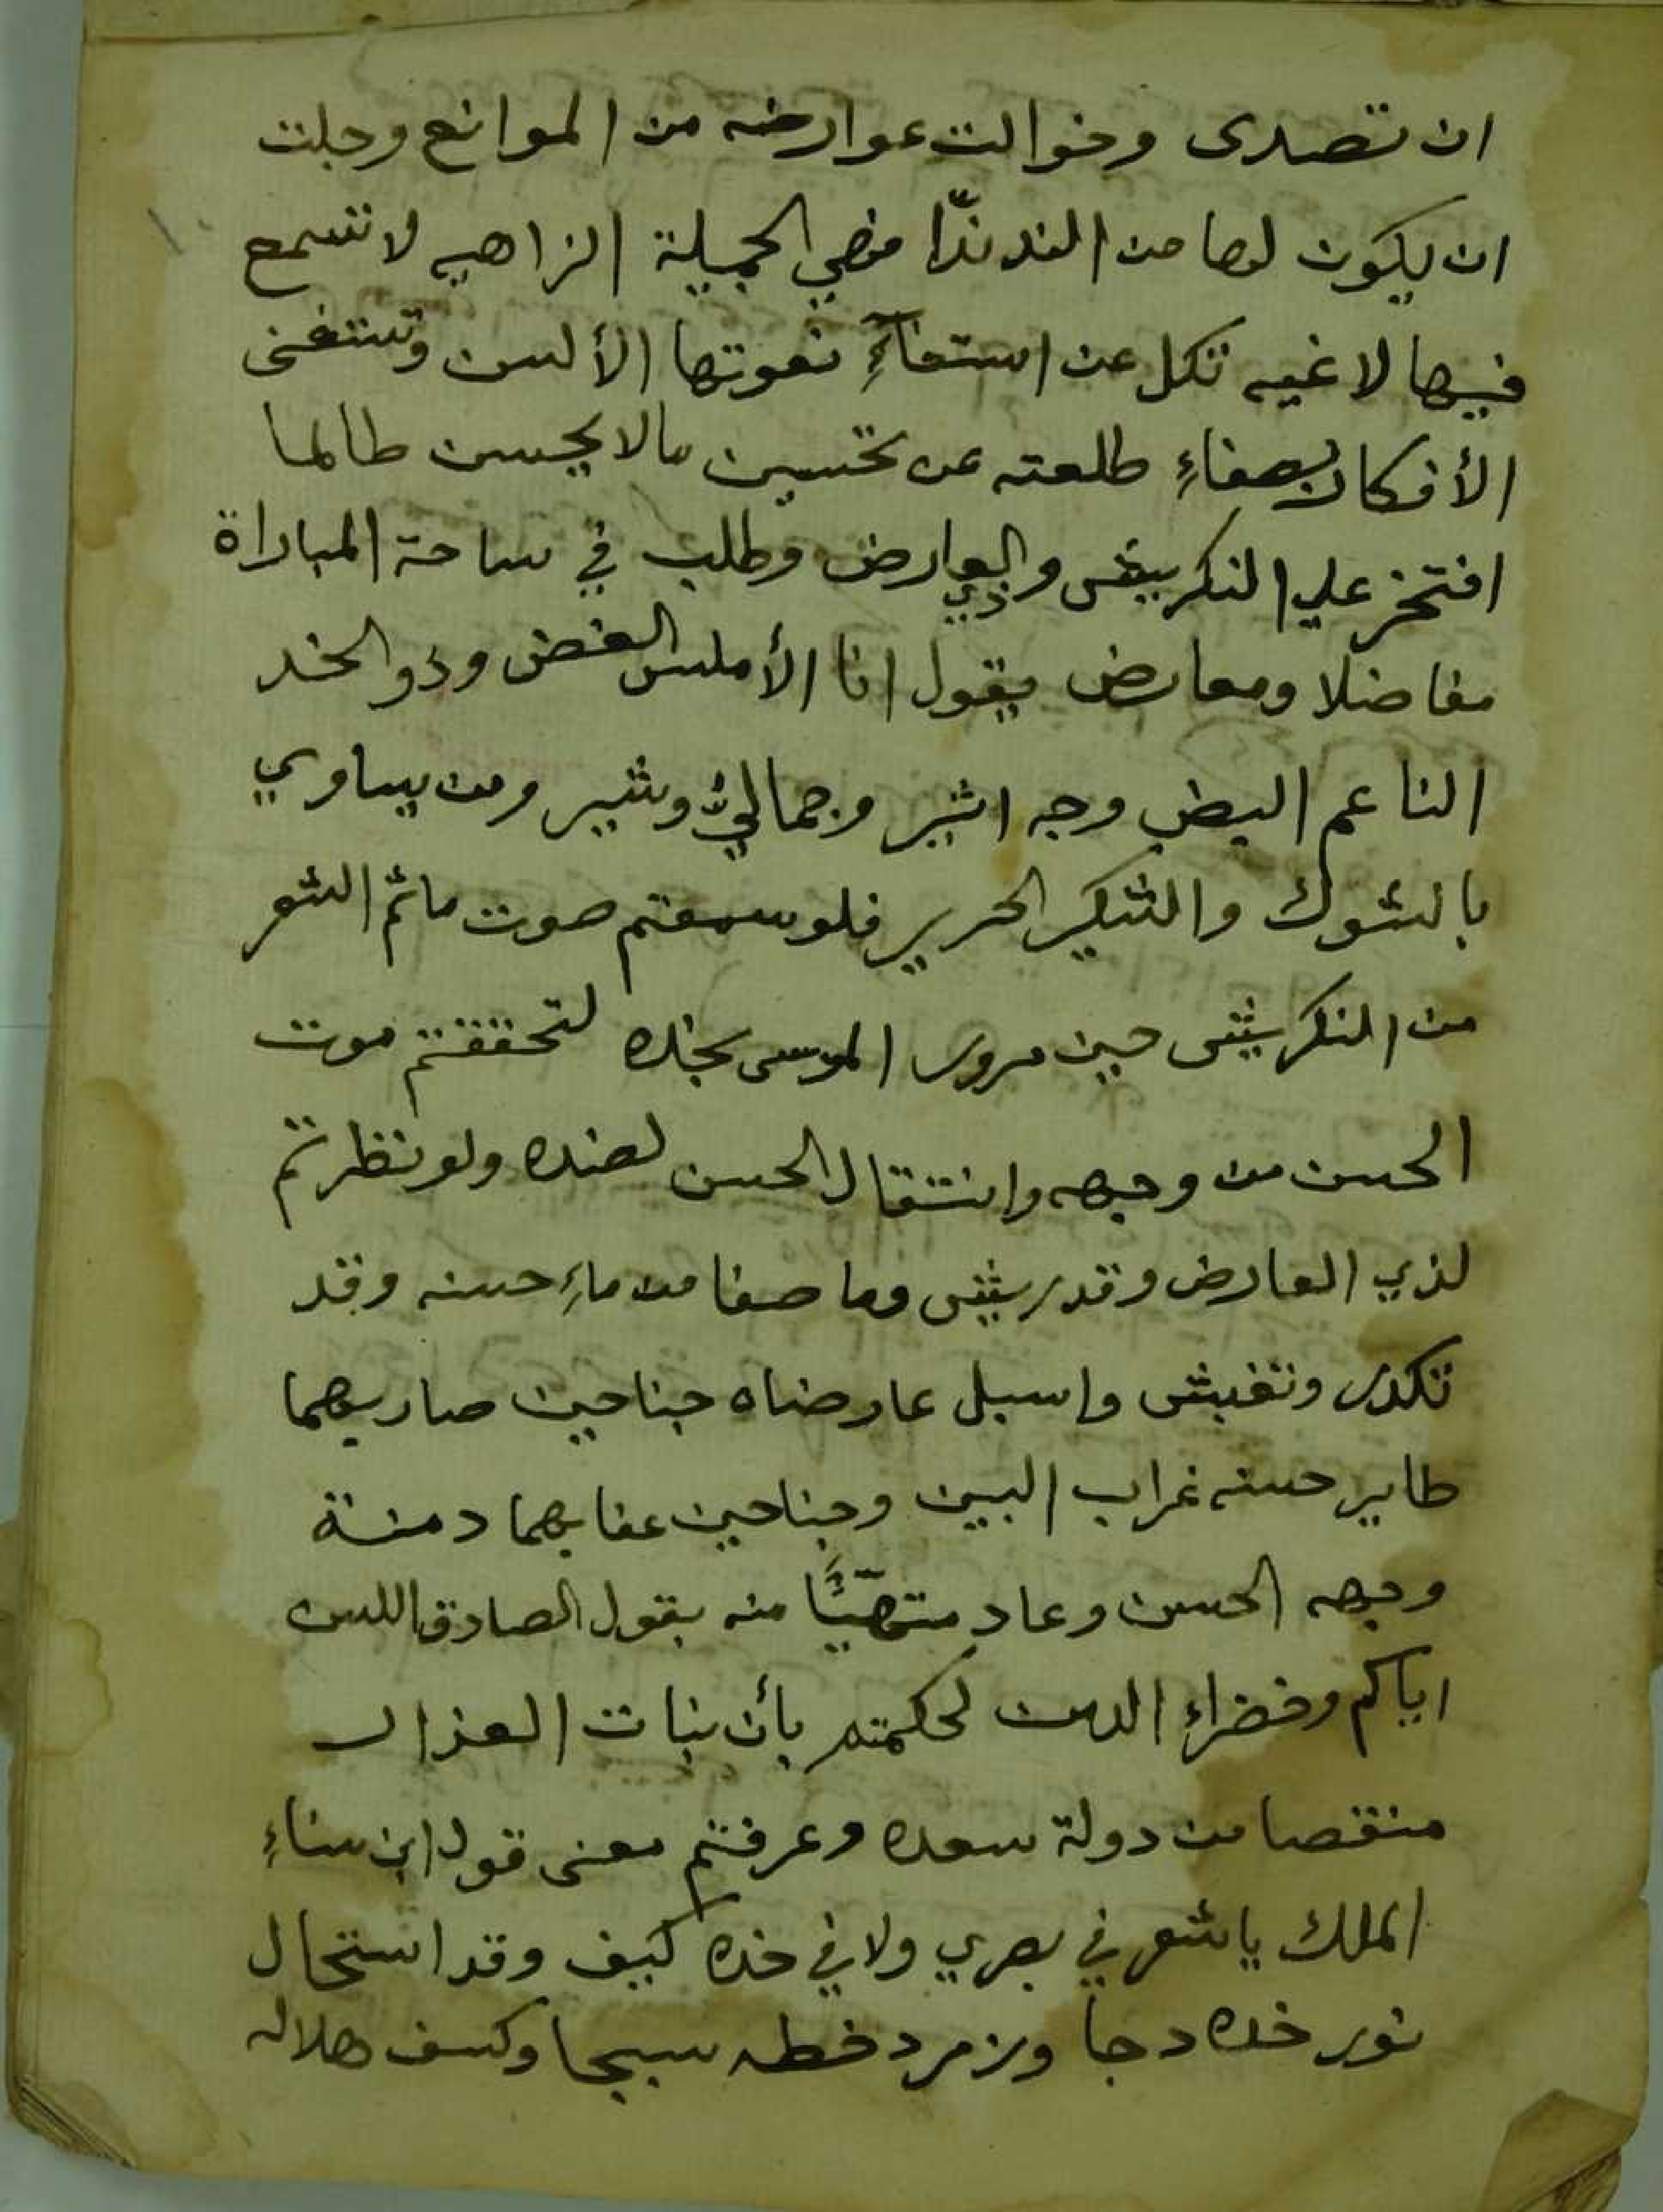 ان تصدى وخوالت عوارضه من الموانع وجلت
ان يكون لها من الند ندّا فهي الجميلة الزاهيه لا تسمع
فيها لاغيه تكل عن استفآءِ نعوتها الألسن وتستغنى
الأفكار بصفاءِ طلعته عن تحسين مالا يحسن طالما
افتخر علي النكريش وذي العارض وطلب في ساحة المباراة
مفاضلا ومعارض يقول انا الأملس الغض وذو الخد
الناعم البض وجه اثير وجمالي وثير ومن يساوي
بالشوك والشكير الحرير فلو سمعتم صوت ماتم الشعر
من النكريش حين مرور الموسى بخده لتحققتم موت
الحسن من وجهه وانتقال الحسن لضده ولو نظرتم
لذي العارض وقد ريش وما صفا من ماءِ حسنه وقد
تكدر وتغبش واسبل عارضاه جناحين صار بهما
طاير حسنه غراب البين وجناحين عفا بهما دمنة
وجهه الحسن وعاد متهيّئًا منه بقول الصادق اللسن
اياكم وخضراءِ الدمن لحكمته بأن نبات العذار
منتقصا من دولة سعده وعرفتم معنى قول ابن سناءِ
الملك يا شعر في بصري ولا في خده كيف وقد استحال
نور خده دجا وزمرد خطه سبجا وكسف هلاله